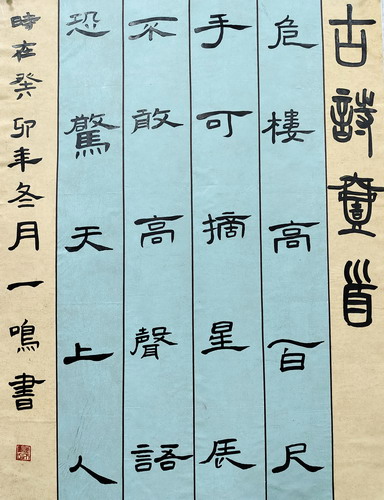 古詩壹首
危樓高百尺
手可摘星辰
不敢高聲語
恐驚天上人
時在癸卯年冬月一鳴書